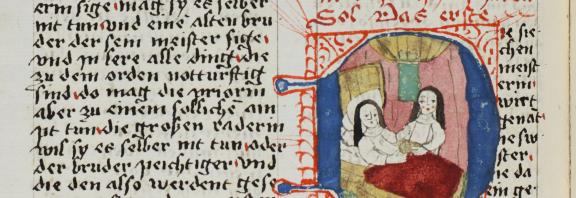 erm sige mag sy es selber
nit tun und eine alten bru
der der sein meister sige
und in lere alle ding die
zu dem orden notturftig
sind do mag die priorin
aber zu einem solliche am
pt tun die großen kaderin
wil sy es selber nit tun oder
der bruder peichtiger und
die den also werdent gese
Sol Das erste
ie sie
chen
meist
erm
wirt
genat
ie sw
ster
ie da
em ge